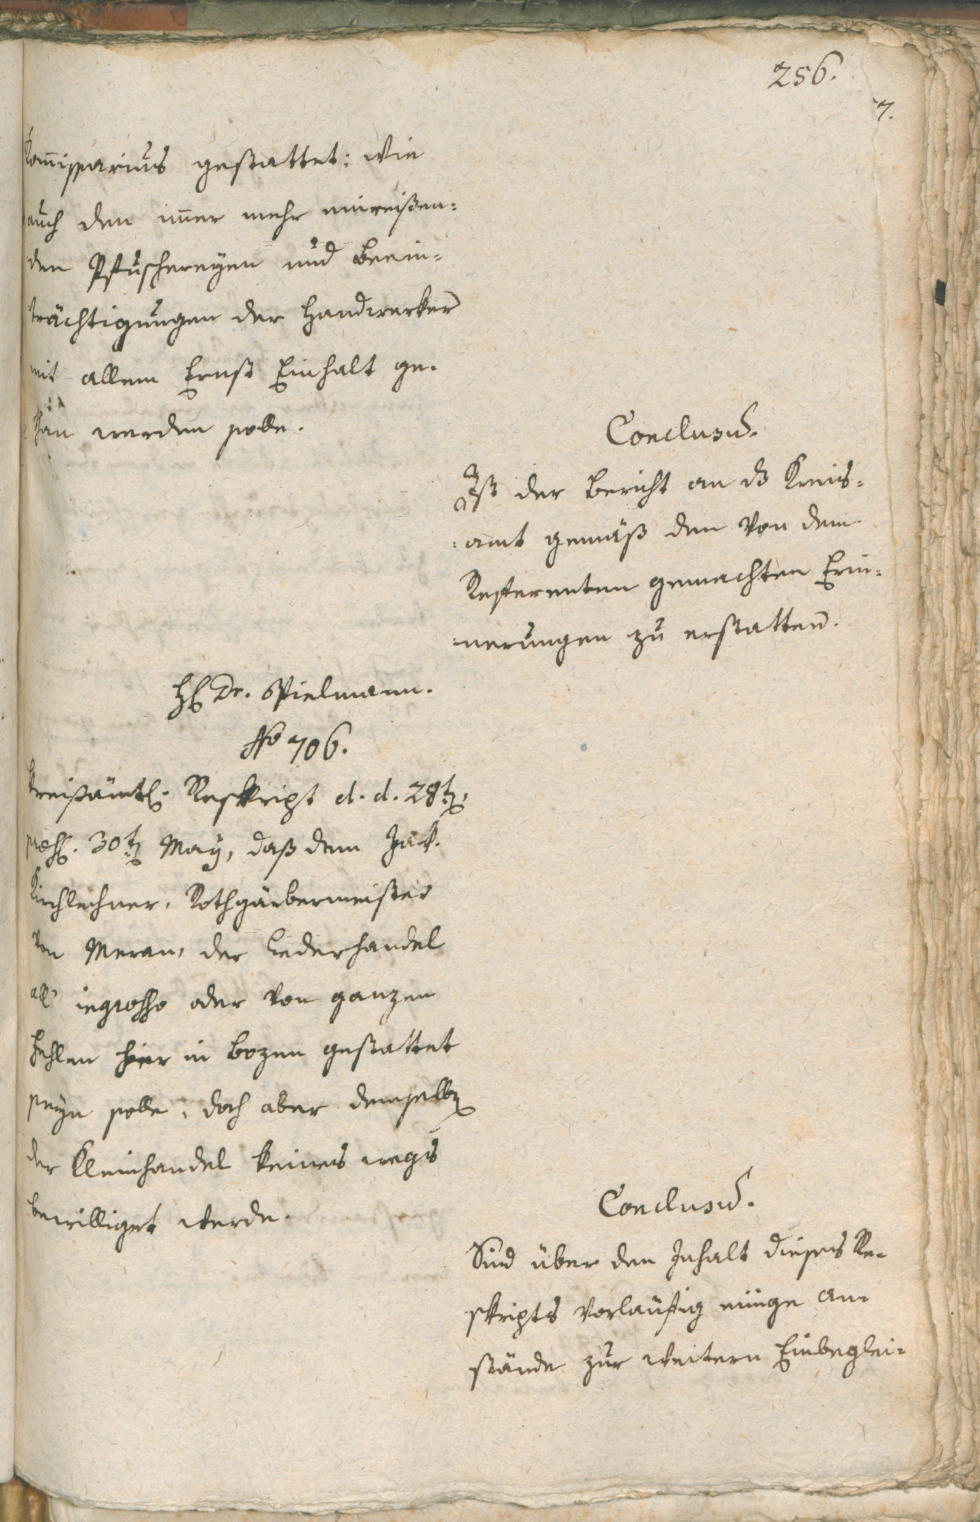 256.
7.
Kom̅issarius gestattet: wie
auch den im̅er mehr einreißen=
den Pfuschereyen und Beein=
trächtigungen der Handwerker
mit allem Ernst Einhalt ge-
than werden solle.
Conclusū.
Ist der Bericht an dß Kreis=
amt gemäß den von dem
Referenten gemachten Erin=
nerungen zu erstatten.
H. Dr. Spielmann.
No 706.
Kreißämtl. Reskript d. d. 28t,
præs. 30t May, daß dem Jak.
Kirchlechner, Rothgärbermeister
von Meran, der Lederhandel
all' ingrosso oder von ganzen
Fehlen hier in Bozen gestattet
seyn solle; doch aber demselb
der Kleinhandel keines wegs
bewilliget werde.
Conclusū.
Sind über den Inhalt dieses Re-
skripts vorläufig einige An-
stände zur weitern Einbeglei=